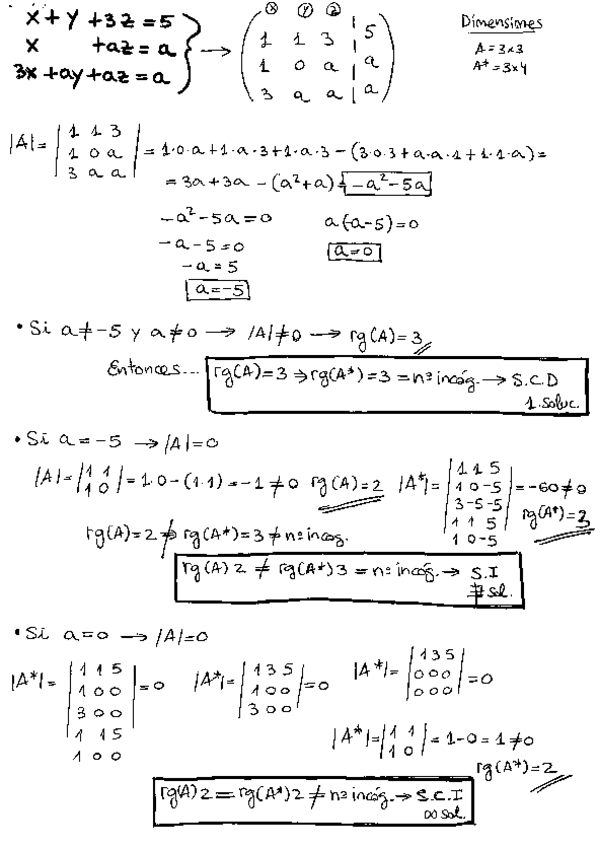 x + y + 3z = 5
x + az = a
3x + ay + az = a
x y z
1 1 3 | 5
1 0 a | a
3 a a | a
Dimensiones
A = 3x3
A* = 3x4
|A| = | 1 1 3 | = 1·0·a + 1·a·3 + 1·a·3 − (3·0·3 + a·a·1 + 1·1·a) =
| 1 0 a |
| 3 a a |
= 3a + 3a − (a² + a) = −a² − 5a
−a² − 5a = 0 a(−a−5) = 0
−a − 5 = 0 a = 0
−a = 5
a = −5
• Si a ≠ −5 y a ≠ 0 → |A| ≠ 0 → rg(A) = 3
Entonces... rg(A) = 3 ⇒ rg(A*) = 3 = nº incóg. → S.C.D
1. soluc.
• Si a = −5 → |A| = 0
|A| = | 1 1 | = 1·0 − (1·1) = −1 ≠ 0 rg(A) = 2
| 1 0 |
|A*| = | 1 1 5 | = −60 ≠ 0
| 1 0 −5 |
| 3 −5 −5 |
1 1 5
1 0 −5
rg(A*) = 3
rg(A) = 2 ≠ rg(A*) = 3 ≠ nº incóg.
rg(A) 2 ≠ rg(A*) 3 = nº incóg. → S.I
∄ sol.
• Si a = 0 → |A| = 0
|A*| = | 1 1 5 | = 0
| 1 0 0 |
| 3 0 0 |
1 1 5
1 0 0
|A*| = | 1 3 5 | = 0
| 1 0 0 |
| 3 0 0 |
|A*| = | 1 3 5 | = 0
| 0 0 0 |
| 0 0 0 |
|A*| = | 1 1 | = 1 − 0 = 1 ≠ 0
| 1 0 |
rg(A*) = 2
rg(A) 2 = rg(A*) 2 ≠ nº incóg. → S.C.I
∞ sol.